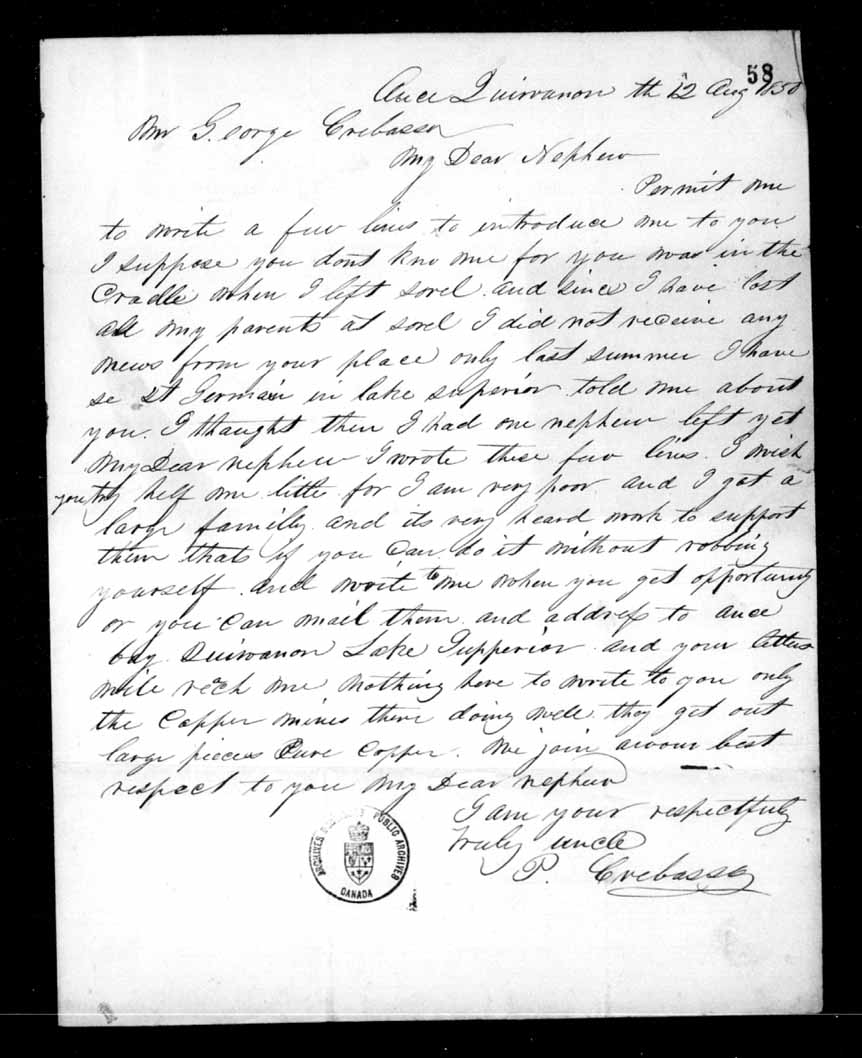 58
Ance Quiwanon th 12 Aug 1850
Mr George Crebassa
My Dear Nephew
Permit me
to write a few lines to introduce me to you
I suppose you dont kno me for you was in the
Cradle when I left sorel and since I have lost
all my parents at sorel I did not receive any
news from your place only last summer I have
se St Germain in lake superior told me about
you. I thaught then I had one nephew left yet
My Dear nephew I wrote these few lines I wish
you try help me little for I am very poor and I got a
large familly and its very heard work to support
them thats if you Can do it without robbing
yourself and write to me when you get opportunity
or you Can mail them and address to Ance
bay Quiwanon Lake Supperior and your letters
wile reach me nothing here to write to you only
the Copper mines there doing well they get out
large pieces Pure Copper. We join best
respect to you My Dear nephew
I am your respectfuly
truly uncle
P. Crebassa
PUBLIC ARCHIVES
ARCHIVES
CANADA